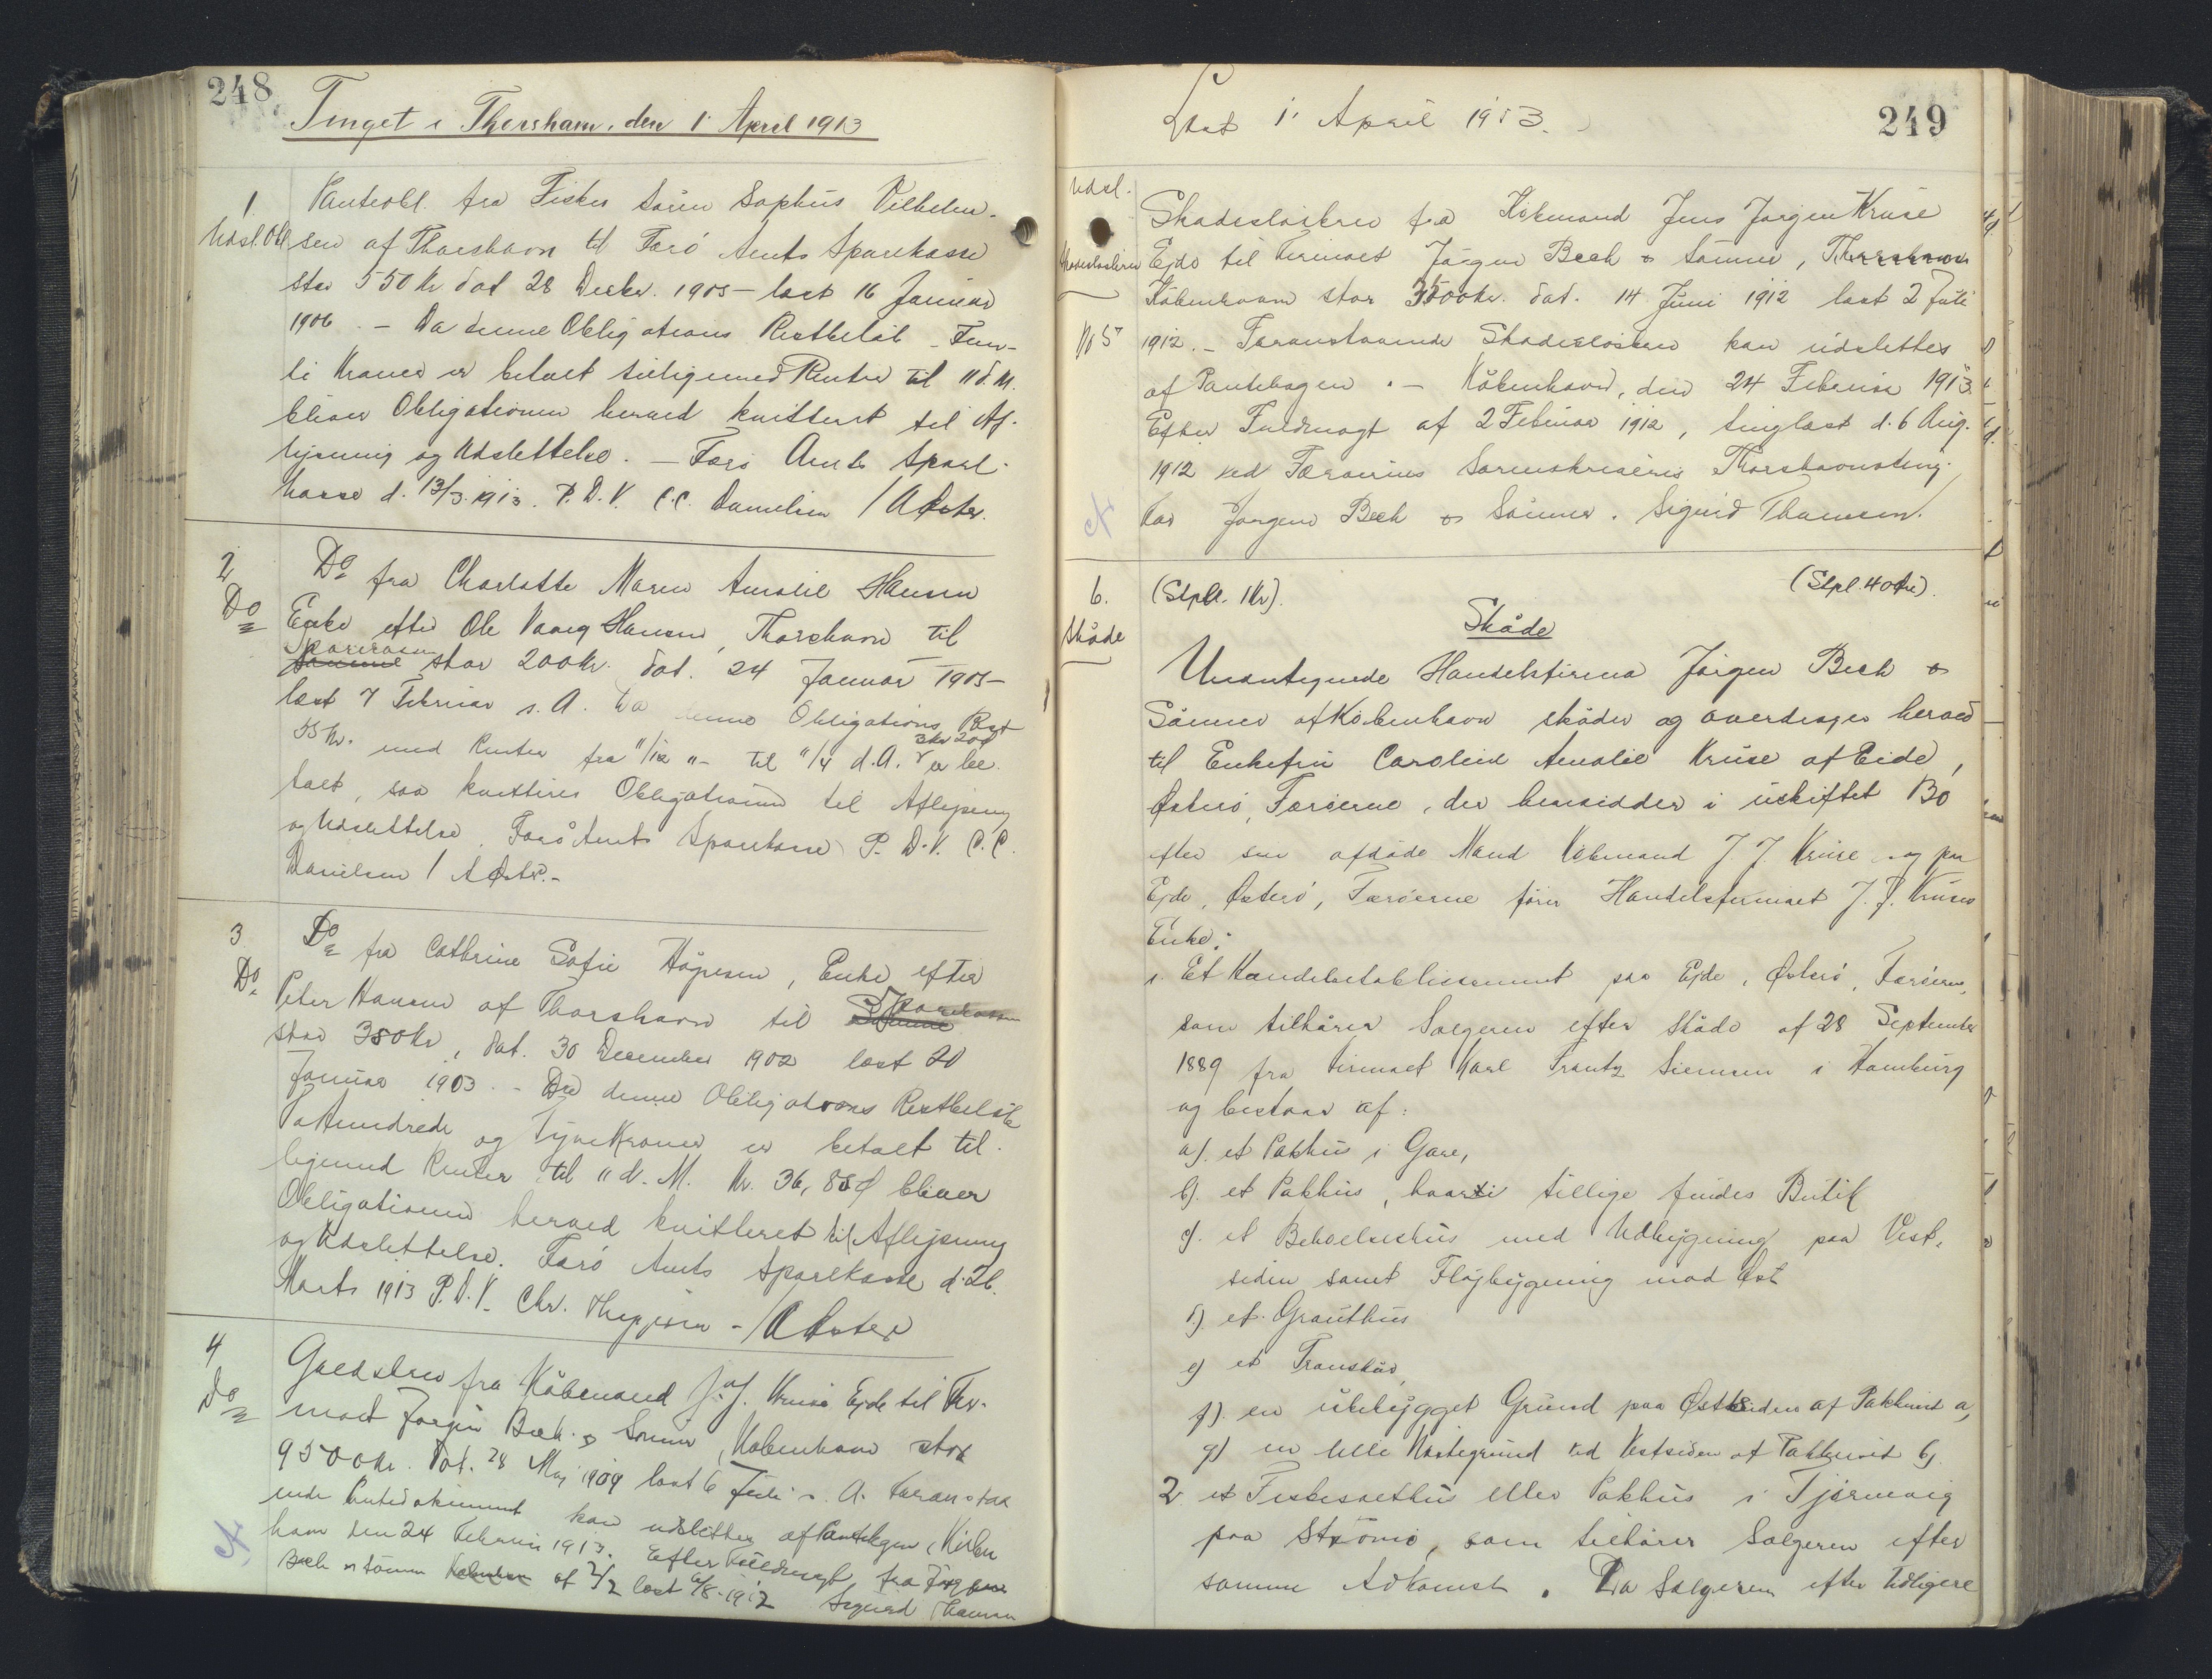 248
Tinget i Thorshavn, den 1' April 1913
1. Udsl. Obl
Panteobl. fra Fisker Sørin Sophus Vilhelm-
sen af Thorshavn til Færø Amts Sparekasse
stor 550 Kr dat 28 Decbr. 1905 – læst 16 Januar
1906. – Da denne Obligations Restbeløb – Fem-
ti Kroner er betalt tilligemed Renter til 11 d.M.
bliver Obligationen herved kvitteret til Af-
lysning og Udslettelse. – Færø Amts Spare-
kasse d. 13/3 1913. P.D.V. C.C. Danielsen / A Øster.
2 Do
Do fra Charlotte Maren Amalie Hansen
Enke efter Ole Vaag Hansen, Thorshavn til
Sparekassen
Samme stor 200 Kr. dat. 24 Januar 1905 –
læst 7 Februar s. A. Da denne Obligations Rest
3 Kr 20 Ø
55 Kr. med Renter fra 11/12 – til 11/4 d.A. er be-
talt, saa kvitteres Obligationen til Aflysning
og Udslettelse. Færø Amts Sparekasse P. D.V. C.C.
Danielsen / A Øster. –
3 Do
Do fra Cathrine Sofie Højresen, Enke efter
Peter Hansen af Thorshavn til Samme Sparekassen
stor 380 Kr, dat. 30 December 1902 læst 20
Januar 1903. – Da denne Obligations Restbeløb
To Hundrede og Tyve Kroner er betalt til-
ligemed Renter til 11 d. M. Kr. 36, 85 Ø bliver
Obligationen herved kvitteret til Aflysning
og Udslettelse. Færø Amts Sparekasse d. 26.
Marts 1913 P.D.V. Chr. – / A Øster
4 Do
Gældsbrev fra Købmand J. J. Kruse Ejde til Fir-
maet Jørgen Bech & Sønner, København stor
9500 Kr. Dat. 28 Maj 1909 læst 6 Juli s. A. Foransta-
ende Pantedokument kan udslettes af Pantebogen, Køben-
havn den 24 Februar 1913. Efter Fuldmagt fra Jørgen
Bech & Sønner København af 2/2 læst 6/8 – 1912 Sigurd Thomsen
249
Læst 1' April 1913.
Udsl. Skadesløsbrev
No 5
Skadesløsbrev fra Købmand Jens Jørgen Kruse
Ejde til Firmaet Jørgen Bech & Sønner, Thorshavn
København stor 3500 Kr. dat. 14 Juni 1912 læst 2 Juli
1912. – Foranstaaende Skadesløsbrev kan udslettes
af Pantebogen. – København, den 24 Februar 1913
Efter Fuldmagt af 2 Februar 1912, tinglæst d. 6 Aug.
1912 ved Færøernes Sorenskriveris Thorshavnsting
for Jørgen Bech & Sønner. Sigurd Thomsen.
6. Skøde
(Stpl. 1 Kr). (Stpl. 40 Øre).
Skøde
Unantegnede Handelsfirma Jørgen Bech &
Sønner af København skøder og overdrager herved
til Enkefru Caroline Amalie Kruse af Eide,
Østerø, Færøerne, der hensidder i uskiftet Bo
efter sin afdøde Mand Købmand J. J. Kruse og paa
Ejde, Østerø, Færøerne fører Handelsfirmaet J. J. Kruses
Enke:
1. Et Handelsetablissement paa Ejde, Østerø, Færøerne,
som tilhører Sælgeren efter Skøde af 28 September
1889 fra Firmaet Karl Frantz Siemsen i Hamburg
og bestaar af:
a). et Pakhus i Gare,
b). et Pakhus, hvori tillige findes Butik
c). et Beboelseshus med Udbygning paa Vest-
siden samt Fløjbygning mod Øst
d) et Grauthus
e) et Transkur,
f). en ubebygget Grund paa Østsiden af Pakhuset a,
g) en lille Nøstegrund ved Vestsiden af Pakhuset b).
2 et Fiskesalthus eller Pakhus i Tjørnevig
paa Strømø, som tilhører Sælgeren efter
samme Adkomst. Da Sælgeren efter tidligere